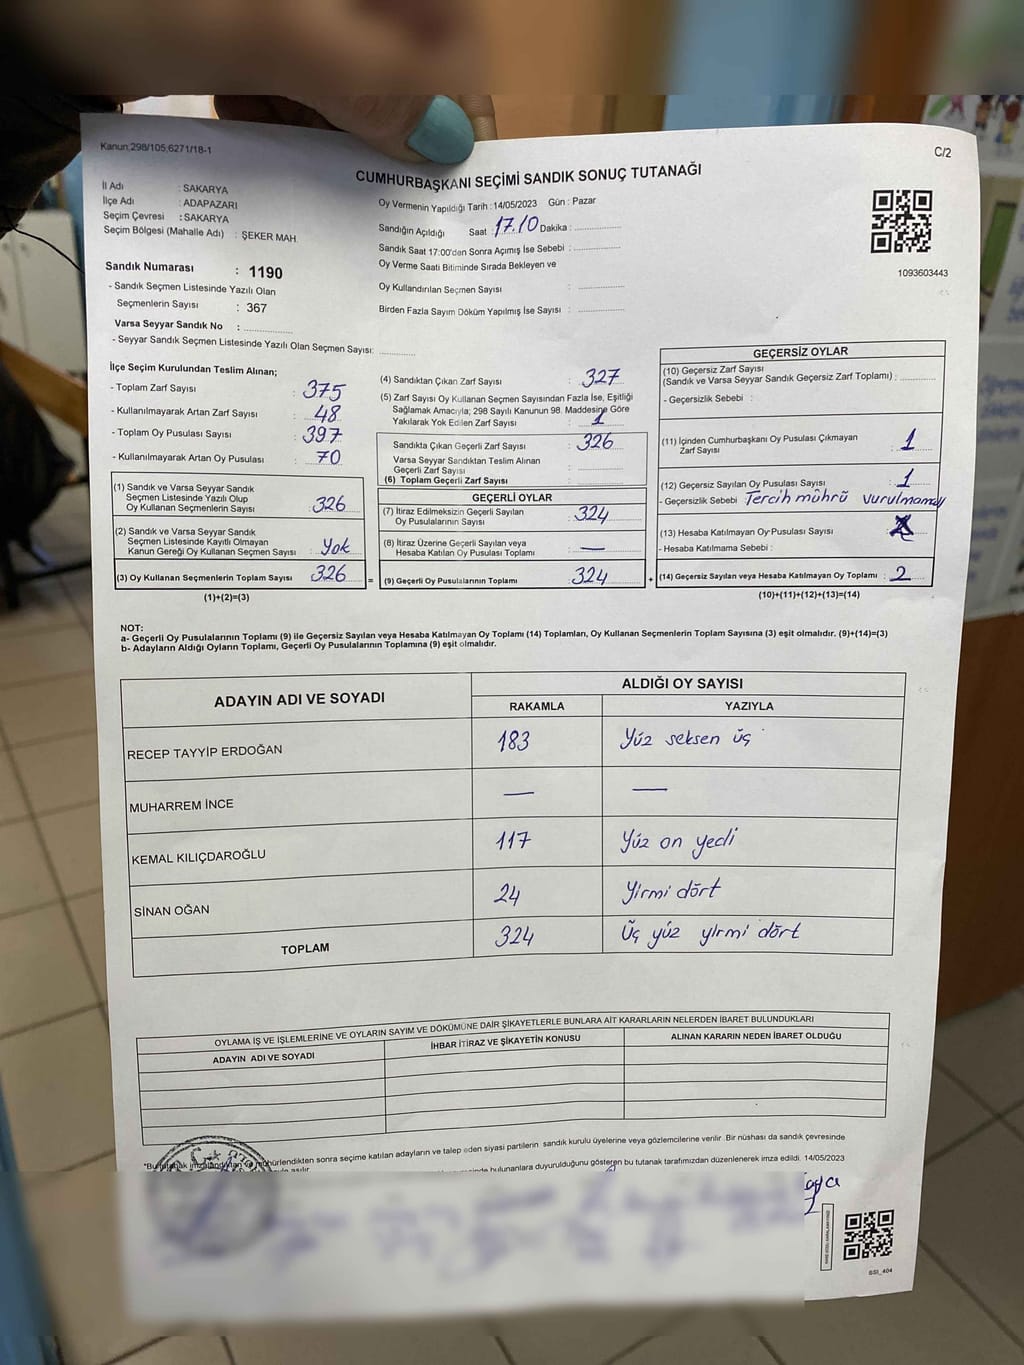 Kanun;298/105,6271/18-1
C/2
CUMHURBAŞKANI SEÇİMİ SANDIK SONUÇ TUTANAĞI
İl Adı : SAKARYA
İlçe Adı : ADAPAZARI
Seçim Çevresi : SAKARYA
Seçim Bölgesi (Mahalle Adı) : ŞEKER MAH.
Sandık Numarası : 1190
- Sandık Seçmen Listesinde Yazılı Olan
Seçmenlerin Sayısı : 367
Varsa Seyyar Sandık No :
- Seyyar Sandık Seçmen Listesinde Yazılı Olan Seçmen Sayısı:
Oy Vermenin Yapıldığı Tarih : 14/05/2023 Gün : Pazar
Sandığın Açıldığı Saat : 17.10 Dakika :
Sandık Saat 17:00'den Sonra Açımış İse Sebebi :
Oy Verme Saati Bitiminde Sırada Bekleyen ve
Oy Kullandırılan Seçmen Sayısı :
Birden Fazla Sayım Döküm Yapılmış İse Sayısı :
1093603443
İlçe Seçim Kurulundan Teslim Alınan;
- Toplam Zarf Sayısı : 375
- Kullanılmayarak Artan Zarf Sayısı : 48
- Toplam Oy Pusulası Sayısı : 397
- Kullanılmayarak Artan Oy Pusulası : 70
(1) Sandık ve Varsa Seyyar Sandık
Seçmen Listesinde Yazılı Olup
Oy Kullanan Seçmenlerin Sayısı : 326
(2) Sandık ve Varsa Seyyar Sandık
Seçmen Listesinde Kayıtlı Olmayan
Kanun Gereği Oy Kullanan Seçmen Sayısı : Yok
(3) Oy Kullanan Seçmenlerin Toplam Sayısı : 326 =
(1)+(2)=(3)
(4) Sandıktan Çıkan Zarf Sayısı : 327
(5) Zarf Sayısı Oy Kullanan Seçmen Sayısından Fazla İse, Eşitliği
Sağlamak Amacıyla; 298 Sayılı Kanunun 98. Maddesine Göre
Yakılarak Yok Edilen Zarf Sayısı : 1
Sandıkta Çıkan Geçerli Zarf Sayısı : 326
Varsa Seyyar Sandıktan Teslim Alınan
Geçerli Zarf Sayısı :
(6) Toplam Geçerli Zarf Sayısı :
GEÇERLİ OYLAR
(7) İtiraz Edilmeksizin Geçerli Sayılan
Oy Pusulalarının Sayısı : 324
(8) İtiraz Üzerine Geçerli Sayılan veya
Hesaba Katılan Oy Pusulası Toplamı : —
(9) Geçerli Oy Pusulalarının Toplamı : 324 +
GEÇERSİZ OYLAR
(10) Geçersiz Zarf Sayısı
(Sandık ve Varsa Seyyar Sandık Geçersiz Zarf Toplamı) :
- Geçersizlik Sebebi :
(11) İçinden Cumhurbaşkanı Oy Pusulası Çıkmayan
Zarf Sayısı : 1
(12) Geçersiz Sayılan Oy Pusulası Sayısı : 1
- Geçersizlik Sebebi : Tercih mührü vurulmamış
(13) Hesaba Katılmayan Oy Pusulası Sayısı :
- Hesaba Katılmama Sebebi :
(14) Geçersiz Sayılan veya Hesaba Katılmayan Oy Toplamı : 2
(10)+(11)+(12)+(13)=(14)
NOT:
a- Geçerli Oy Pusulalarının Toplamı (9) ile Geçersiz Sayılan veya Hesaba Katılmayan Oy Toplamı (14) Toplamları, Oy Kullanan Seçmenlerin Toplam Sayısına (3) eşit olmalıdır. (9)+(14)=(3)
b- Adayların Aldığı Oyların Toplamı, Geçerli Oy Pusulalarının Toplamına (9) eşit olmalıdır.
ADAYIN ADI VE SOYADI
ALDIĞI OY SAYISI
RAKAMLA YAZIYLA
RECEP TAYYİP ERDOĞAN 183 Yüz seksen üç
MUHARREM İNCE — —
KEMAL KILIÇDAROĞLU 117 Yüz on yedi
SİNAN OĞAN 24 Yirmi dört
TOPLAM 324 Üç yüz yirmi dört
OYLAMA İŞ VE İŞLEMLERİNE VE OYLARIN SAYIM VE DÖKÜMÜNE DAİR ŞİKAYETLERLE BUNLARA AİT KARARLARIN NELERDEN İBARET BULUNDUKLARI
ADAYIN ADI VE SOYADI İHBAR İTİRAZ VE ŞİKAYETİN KONUSU ALINAN KARARIN NEDEN İBARET OLDUĞU
mühürlendikten sonra seçime katılan adayların ve talep eden siyasi partilerin sandık kurulu üyelerine veya gözlemcilerine verilir. Bir nüshası da sandık çevresinde
bulunanlara duyurulduğunu gösteren bu tutanak tarafımızdan düzenlenerek imza edildi. 14/05/2023
BSI_404